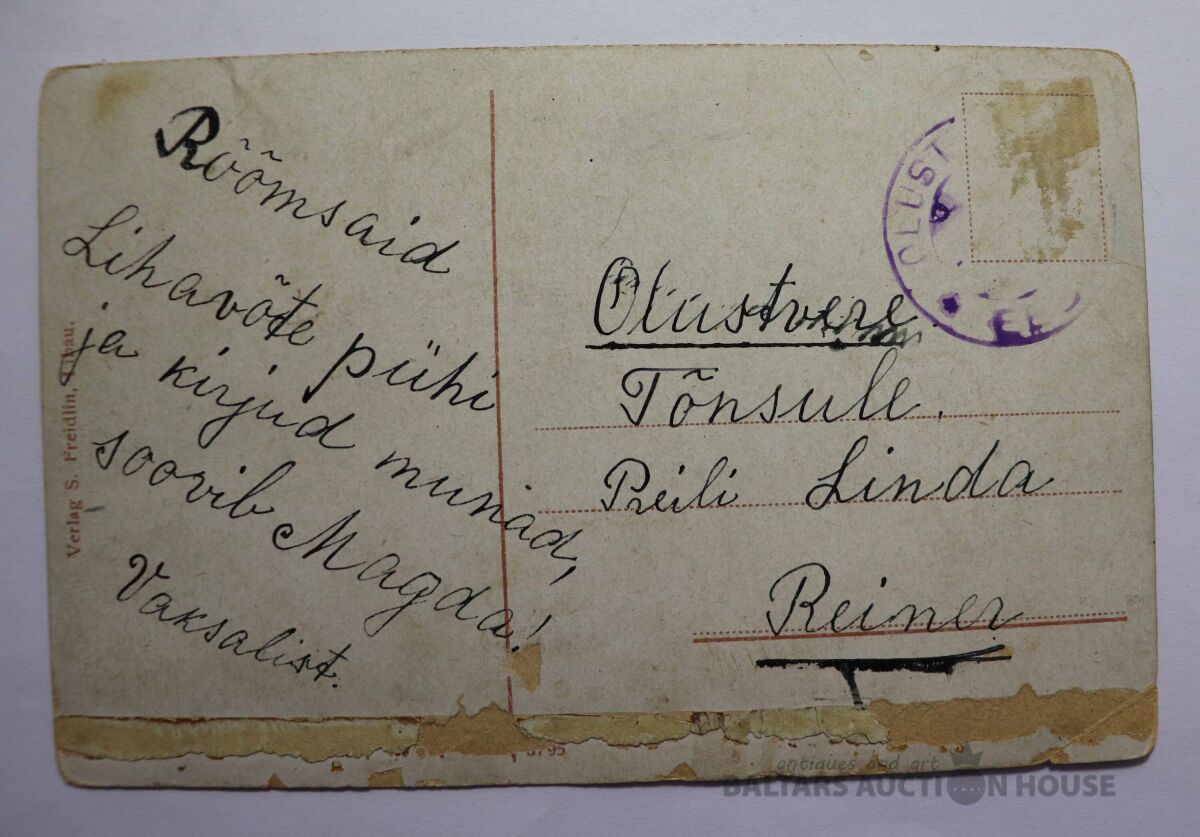 Rõõmsaid
Lihavõte pühi
ja kirjud munad,
soovib Magda!
Vaksalist.
Verlag S. Freidlin, Libau.
OLUST
EE
Olustvere
Tõnsule.
Preili Linda
Reiner
6795
antiques and art
BALTARS AUCTION HOUSE